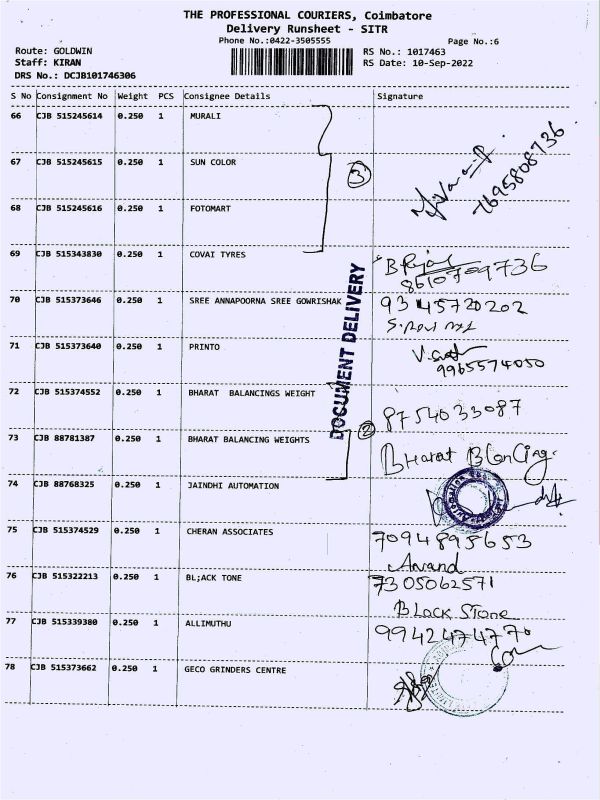 THE PROFESSIONAL COURIERS, Coimbatore
Delivery Runsheet - SITR
Phone No.:0422-3505555 Page No.:6
Route: GOLDWIN RS No.: 1017463
Staff: KIRAN RS Date: 10-Sep-2022
DRS No.: DCJB101746306
S No Consignment No Weight PCS Consignee Details Signature
66 CJB 515245614 0.250 1 MURALI
67 CJB 515245615 0.250 1 SUN COLOR
3
7695808736
68 CJB 515245616 0.250 1 FOTOMART
69 CJB 515343830 0.250 1 COVAI TYRES
8610709736
70 CJB 515373646 0.250 1 SREE ANNAPOORNA SREE GOWRISHAK
9345720202
71 CJB 515373640 0.250 1 PRINTO
9965574050
DOCUMENT DELIVERY
72 CJB 515374552 0.250 1 BHARAT BALANCINGS WEIGHT
8754033087
2
73 CJB 88781387 0.250 1 BHARAT BALANCING WEIGHTS
Bharat Blancing.
74 CJB 88768325 0.250 1 JAINDHI AUTOMATION
75 CJB 515374529 0.250 1 CHERAN ASSOCIATES
7094895653
Anand
76 CJB 515322213 0.250 1 BL;ACK TONE
7305062571
Black Stone
77 CJB 515339380 0.250 1 ALLIMUTHU
9942474770
78 CJB 515373662 0.250 1 GECO GRINDERS CENTRE